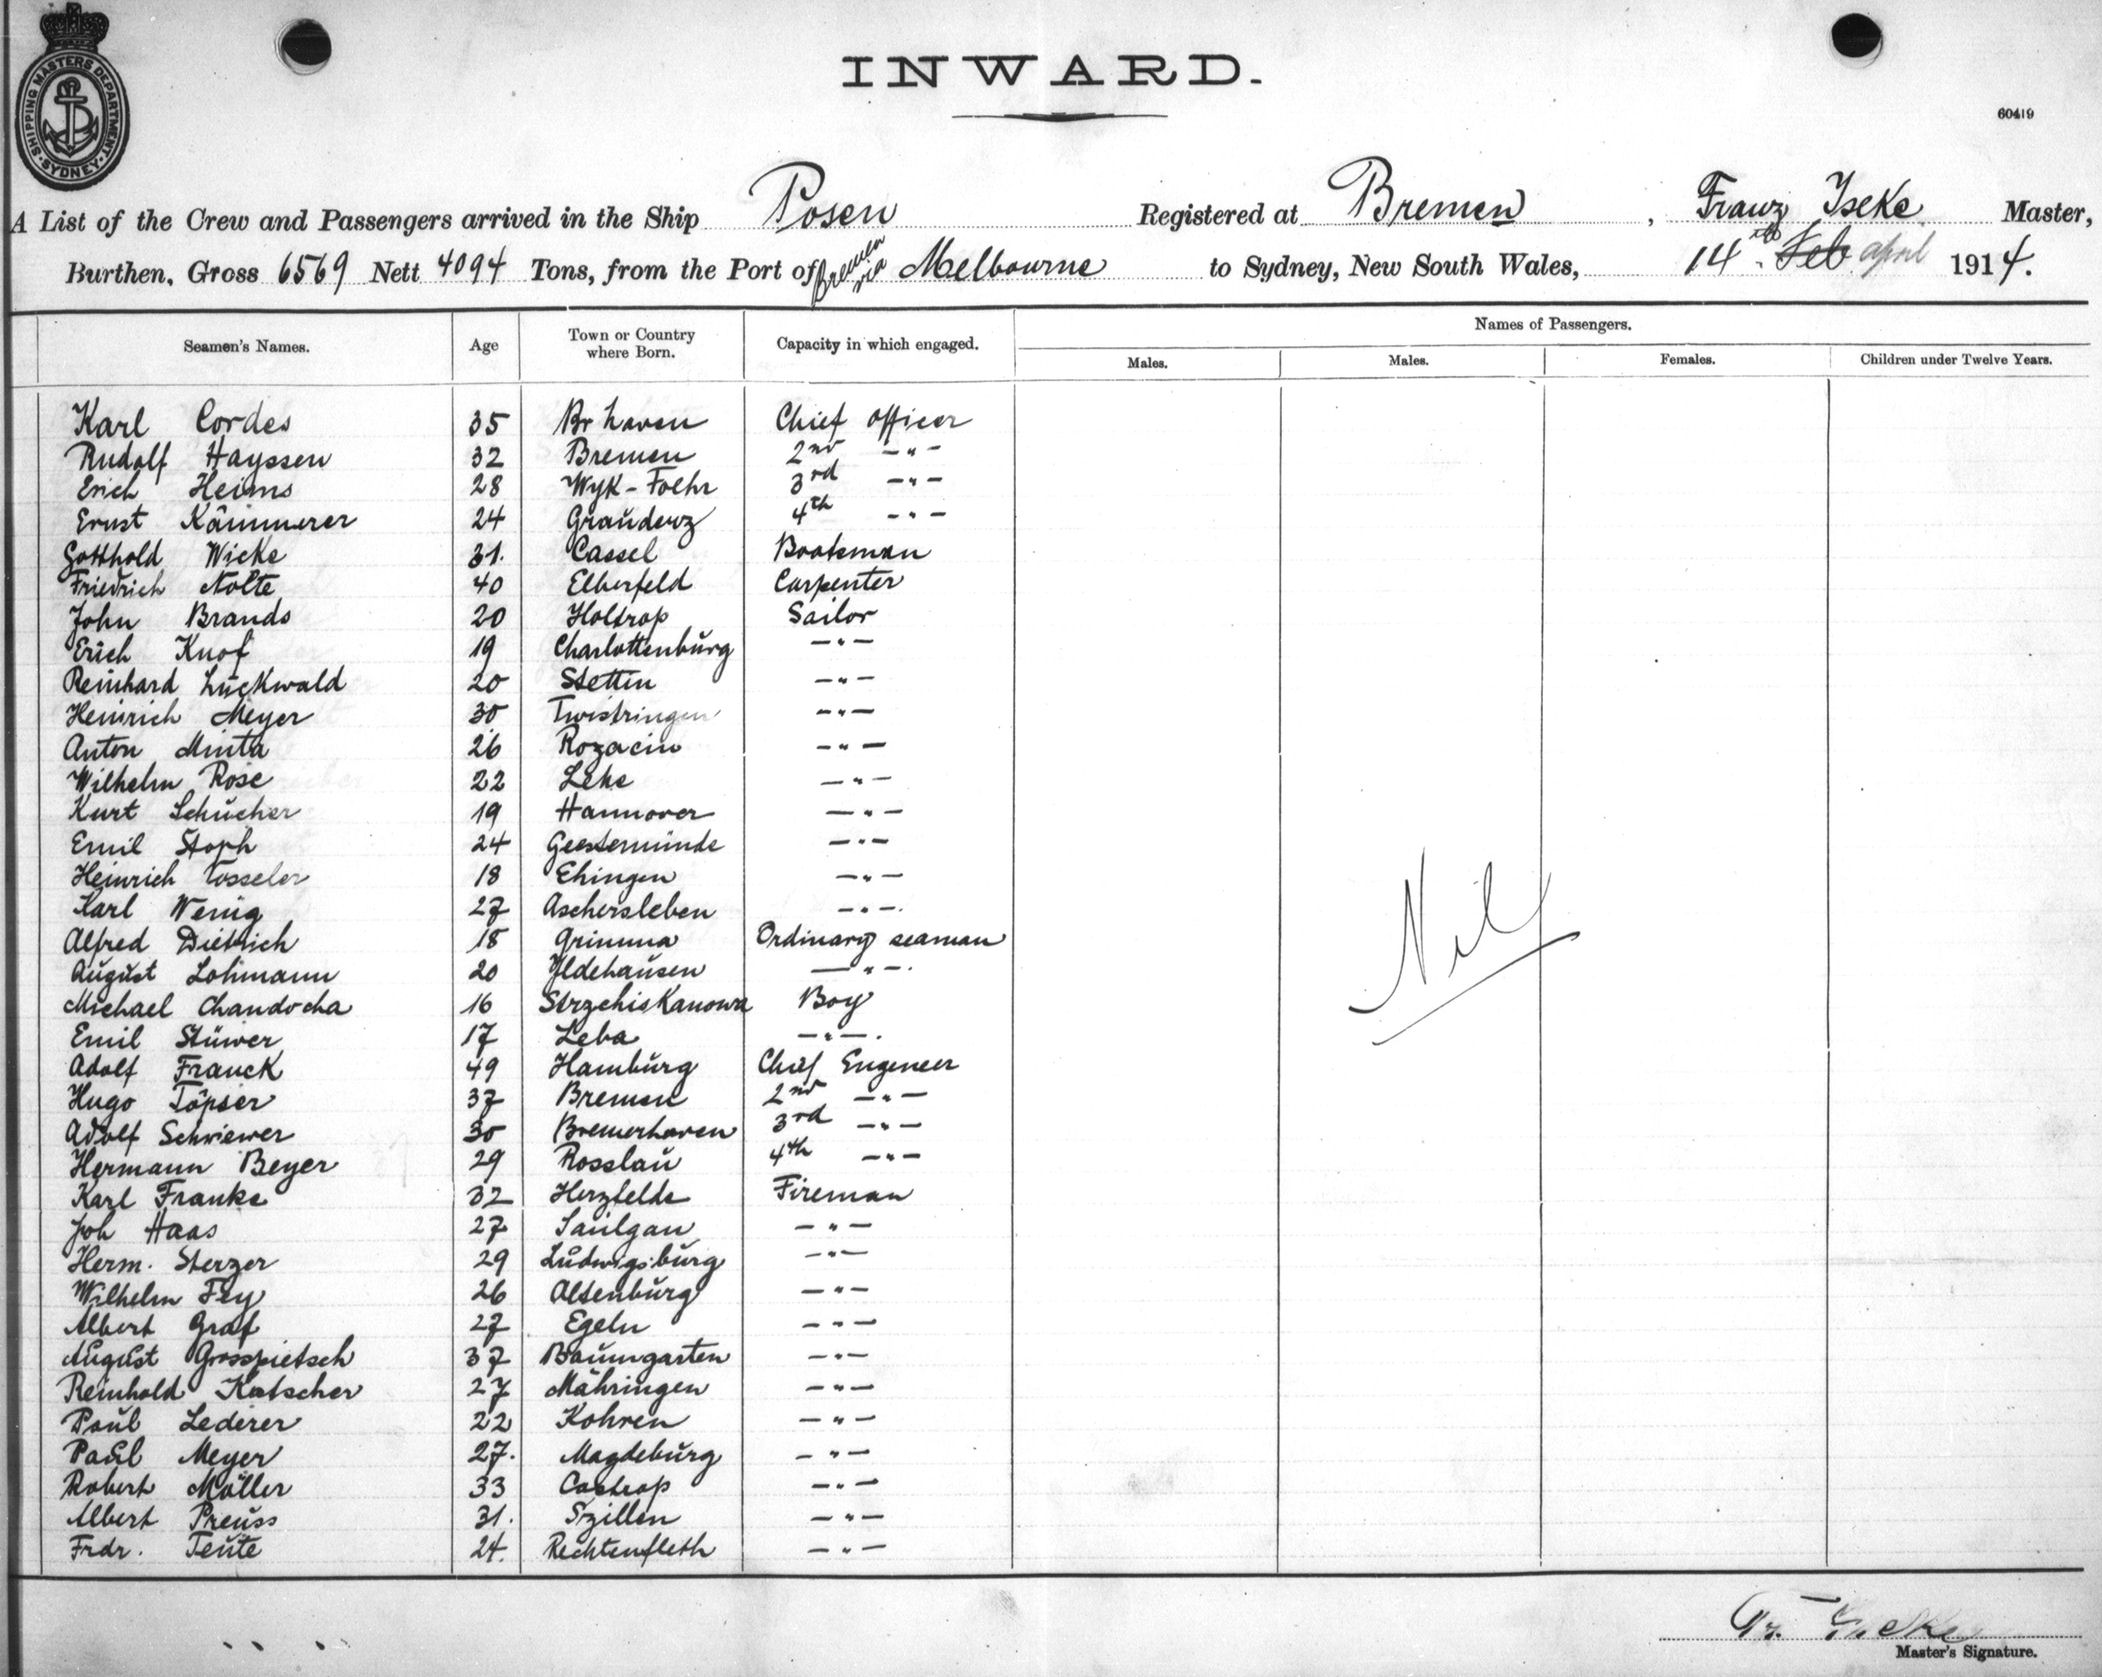 SHIPPING MASTERS DEPARTMENT · SYDNEY ·
INWARD.
60419
A List of the Crew and Passengers arrived in the Ship Posen Registered at Bremen, Franz Iseke Master,
Burthen, Gross 6569 Nett 4094 Tons, from the Port of Bremen via Melbourne to Sydney, New South Wales, 14th Feb april 1914.
Seamen's Names. Age Town or Country where Born. Capacity in which engaged. Names of Passengers.
Males. Males. Females. Children under Twelve Years.
Karl Cordes 35 Br haven Chief officer
Rudolf Hayssen 32 Bremen 2nd -"-
Erich Heims 28 Wyk-Foehr 3rd -"-
Ernst Kämmerer 24 Graudenz 4th -"-
Gotthold Wicke 31. Cassel Bootsman
Friedrich Nolte 40 Elberfeld Carpenter
John Brands 20 Holtrop Sailor
Erich Knof 19 Charlottenbŭrg -"-
Reinhard Lückwald 20 Stettin -"-
Heinrich Meyer 30 Twistringen -"-
Anton Minta 26 Rozacin -"-
Wilhelm Rose 22 Lehe -"-
Kurt Schŭcher 19 Hannover -"-
Emil Stoph 24 Geestemünde -"-
Heinrich Tosseler 18 Ehingen -"-
Karl Wenig 27 Aschersleben -"-.
Alfred Dietrich 18 Grimma Ordinary seaman
Aŭgŭst Lohmann 20 Ildehaŭsen -"-.
Michael Chandocha 16 Strzehiskanowa Boy
Emil Stüwer 17 Leba -"-.
Adolf Franck 49 Hambŭrg Chief Engeneer
Hugo Töpser 37 Bremen 2nd -"-
Adolf Schwiewer 30 Bremerhaven 3rd -"-
Hermann Beyer 29 Rosslaŭ 4th -"-
Karl Franke 32 Herzfelde Fireman
Joh Haas 27 Saŭlgau -"-
Herm. Sterzer 29 Lŭdwigsbŭrg -"-
Wilhelm Fey 26 Altenbŭrg -"-
Albert Graf 27 Egeln -"-
Aŭgŭst Grosspietsch 37 Baŭmgarten -"-
Reinhold Katscher 27 Mähringen -"-
Paŭl Lederer 22 Kohren -"-
Paŭl Meyer 27. Magdebŭrg -"-
Robert Möller 33 Castrop -"-
Albert Preŭss 31. Szillen -"-
Frdr. Teŭte 24. Rechtenfleth -"-
Nil
Fr. Iseke
Master's Signature.